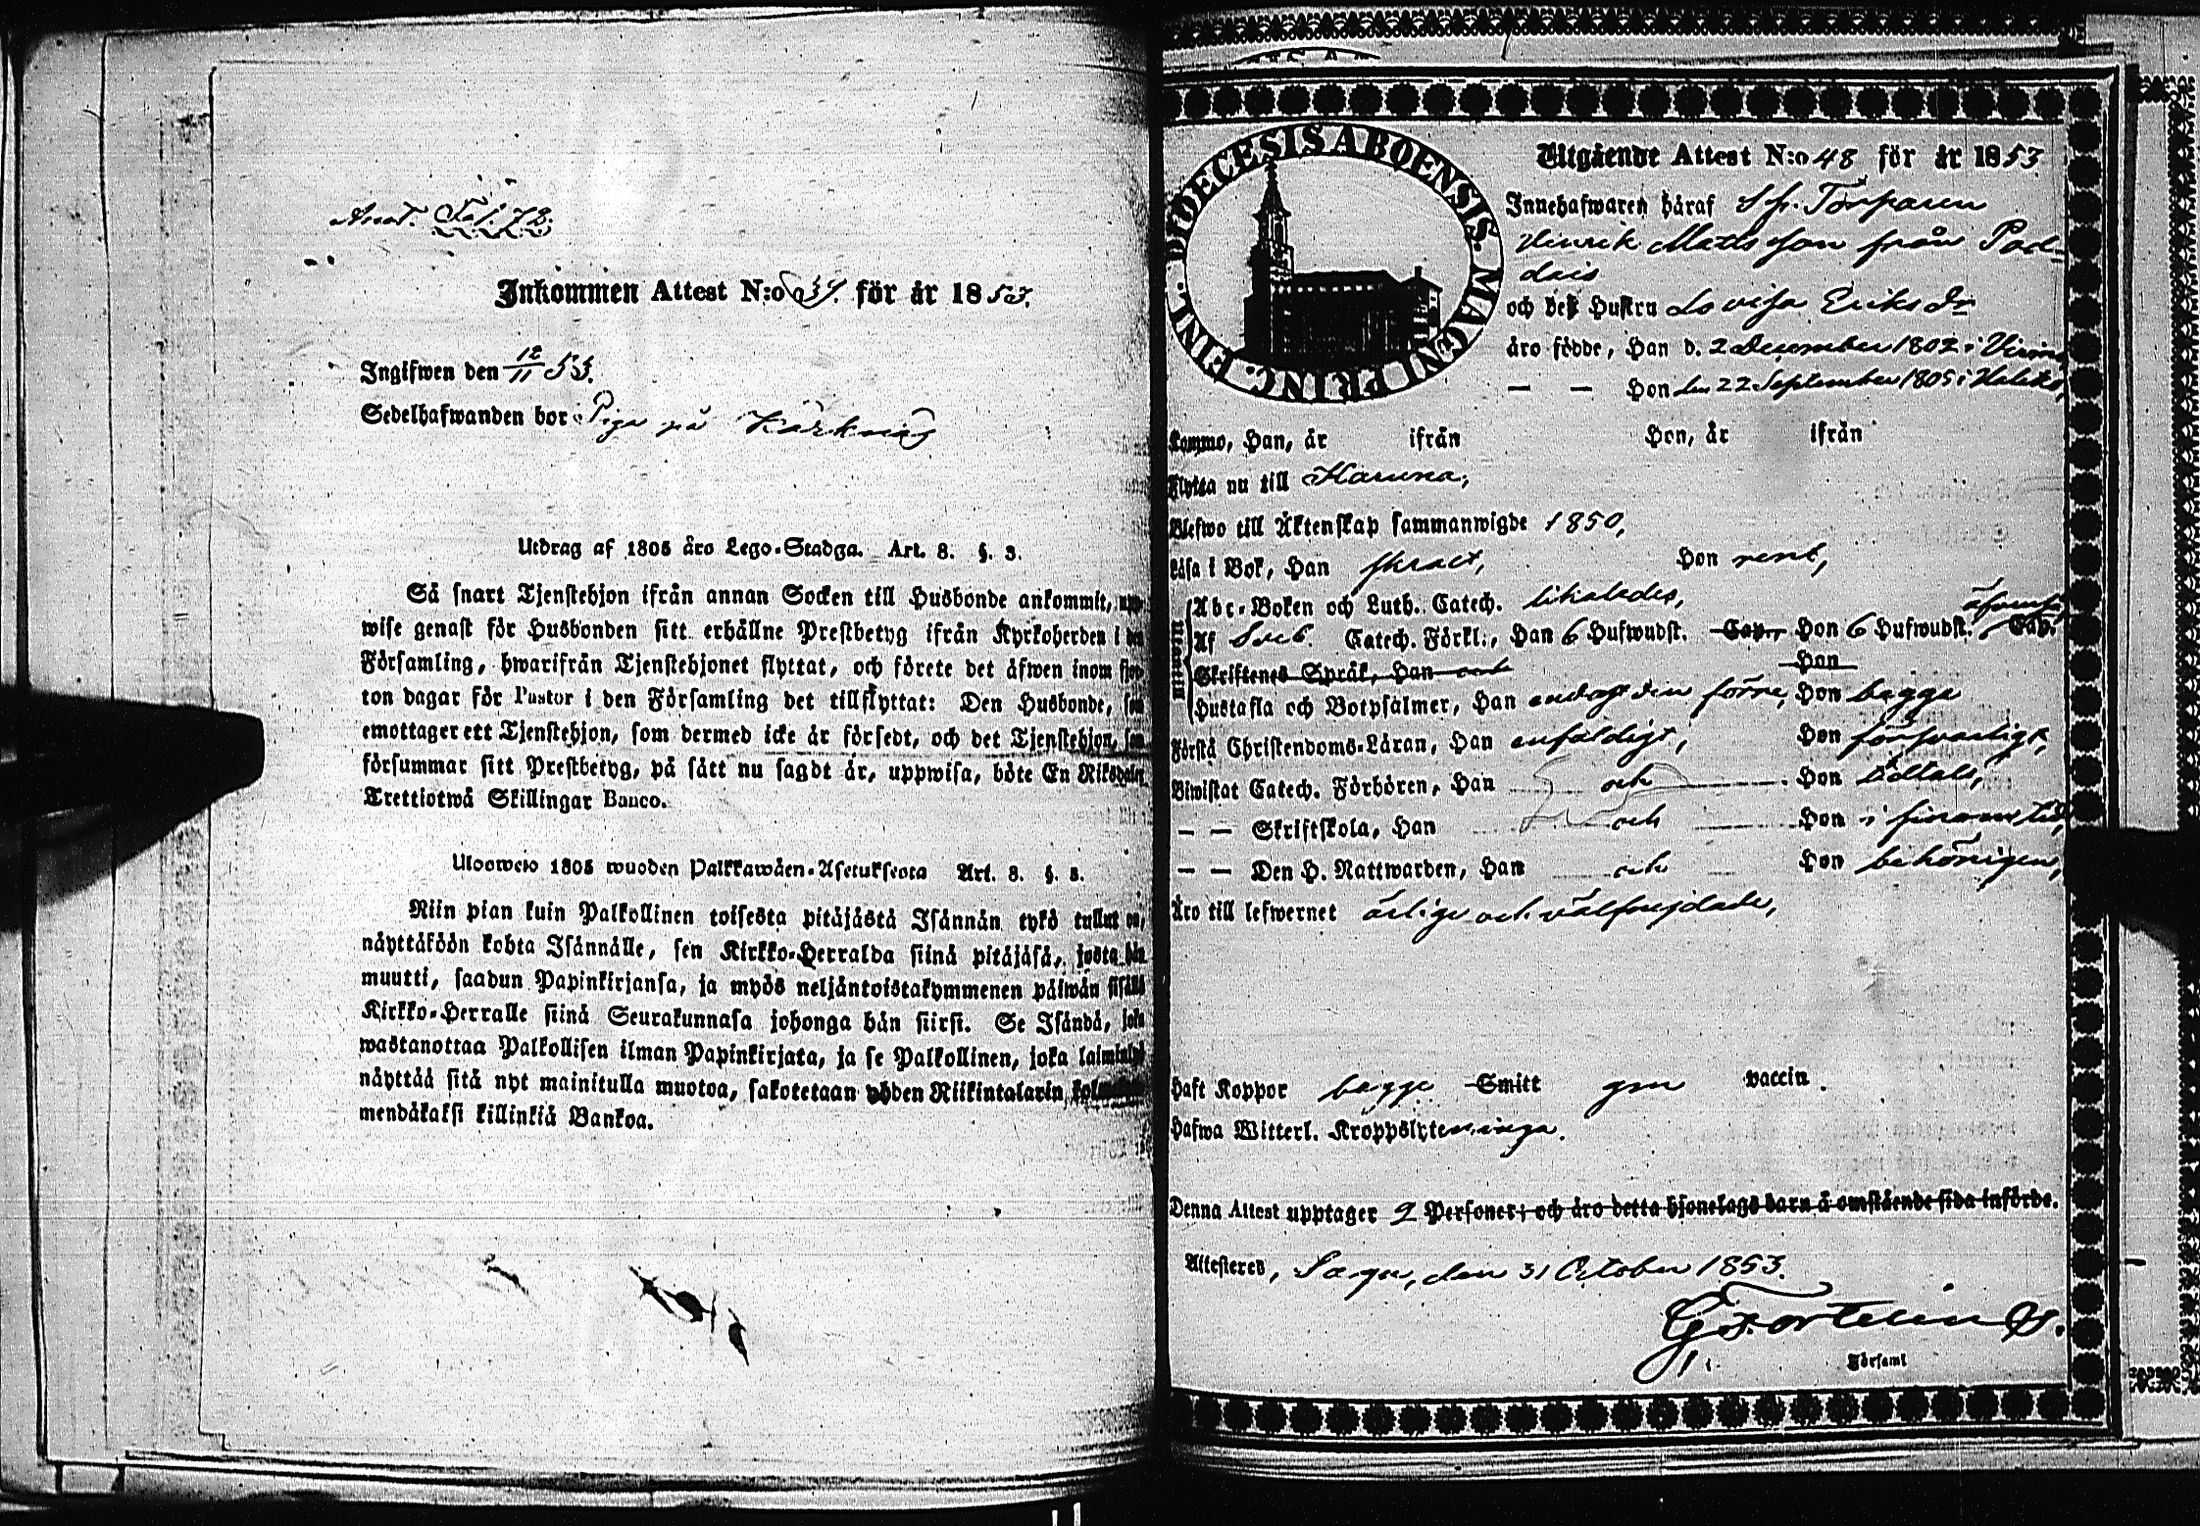 Anot. Fol. 72.
Inkommen Attest N:o 34. för år 1853.
Ingifwen den 12/11 53.
Sedelhafwanden bor Piga på Kärknäs
Utdrag af 1805 års Lego-Stadga. Art. 8. §. 3.
Så snart Tjenstehjon ifrån annan Socken till Husbonde ankommit,
wise genast för Husbonden sitt erhållne Prestbetyg ifrån Kyrkoherden i den
Församling, hwarifrån Tjenstehjonet flyttat, och förete det äfwen inom fjor-
ton dagar för Pastor i den Församling det tillflyttat: Den Husbonde, som
emottager ett Tjenstehjon, som dermed icke är försedt, och det Tjenstehjon, som
försummar sitt Prestbetyg, på sätt nu sagdt är, uppwisa, böte En Riksdaler
Trettiotwå Skillingar Banco.
Ulosweto 1805 wuoden Palkkawäen-Asetuksesta Art. 8. §. 3.
Niin pian kuin Palkollinen toisesta pitäjästä Isännän tykö tullut on,
näyttäköön kohta Isännälle, sen Kirkko-Herralda siinä pitäjäsä, josta hän
muutti, saadun Papinkirjansa, ja myös neljäntoistakymmenen päiwän sisällä
Kirkko-Herralle siinä Seurakunnasa johonga hän siirsi. Se Isändä, joka
wastanottaa Palkollisen ilman Papinkirjata, ja se Palkollinen, joka
näyttää sitä nyt mainitulla muotoa, sakotetaan yhden Riikintalarin
mendäkaksi killinkiä Bankoa.
DIOECESIS ABOENSIS. MAGNI PRINC. FINL.
Utgående Attest N:o 48 för år 1853
Innehafwaren häraf Sp. Torparen
Henrik Matts son från Pad-
dais
och dess Hustru Lovisa Eriks dr
äro födde, Han d. 2 December 1802 i
— — Hon den 22 September 1805 i Halikko,
Kommo, Han, år ifrån Hon, år ifrån
Flytta nu till Karuna,
Blefwo till Äktenskap sammanwigde 1850,
Läsa i Bok, Han skralt, Hon rent,
Abc-Boken och Luth. Catech. likaledes,
Af Sveb. Catech. Förkl., Han 6 Hufwudst. Cap. Hon 6 Hufwudst. Cap.
Skriftenes Språk, Han och Hon
Hustafla och Botpsalmer, Han endast den förre, Hon begge
Förstå Christendoms-Läran, Han enfaldigt, Hon försvarligt,
Biwistat Catech. Förhören, Han och Hon
— — Skriftskola, Han och Hon i sinom tid,
— — Den H. Nattwarden, Han och Hon behörigen,
Äro till lefwernet ärlige och välfrejdade,
Haft Koppor begge Smitt gm vaccin.
Hafwa Witterl. Kroppslyten inga.
Denna Attest upptager 2 Personer; och äro detta hjonelags barn å omstående sida införde.
Attesteres, Sagu, den 31 October 1853.
G Fortelius.
Församl